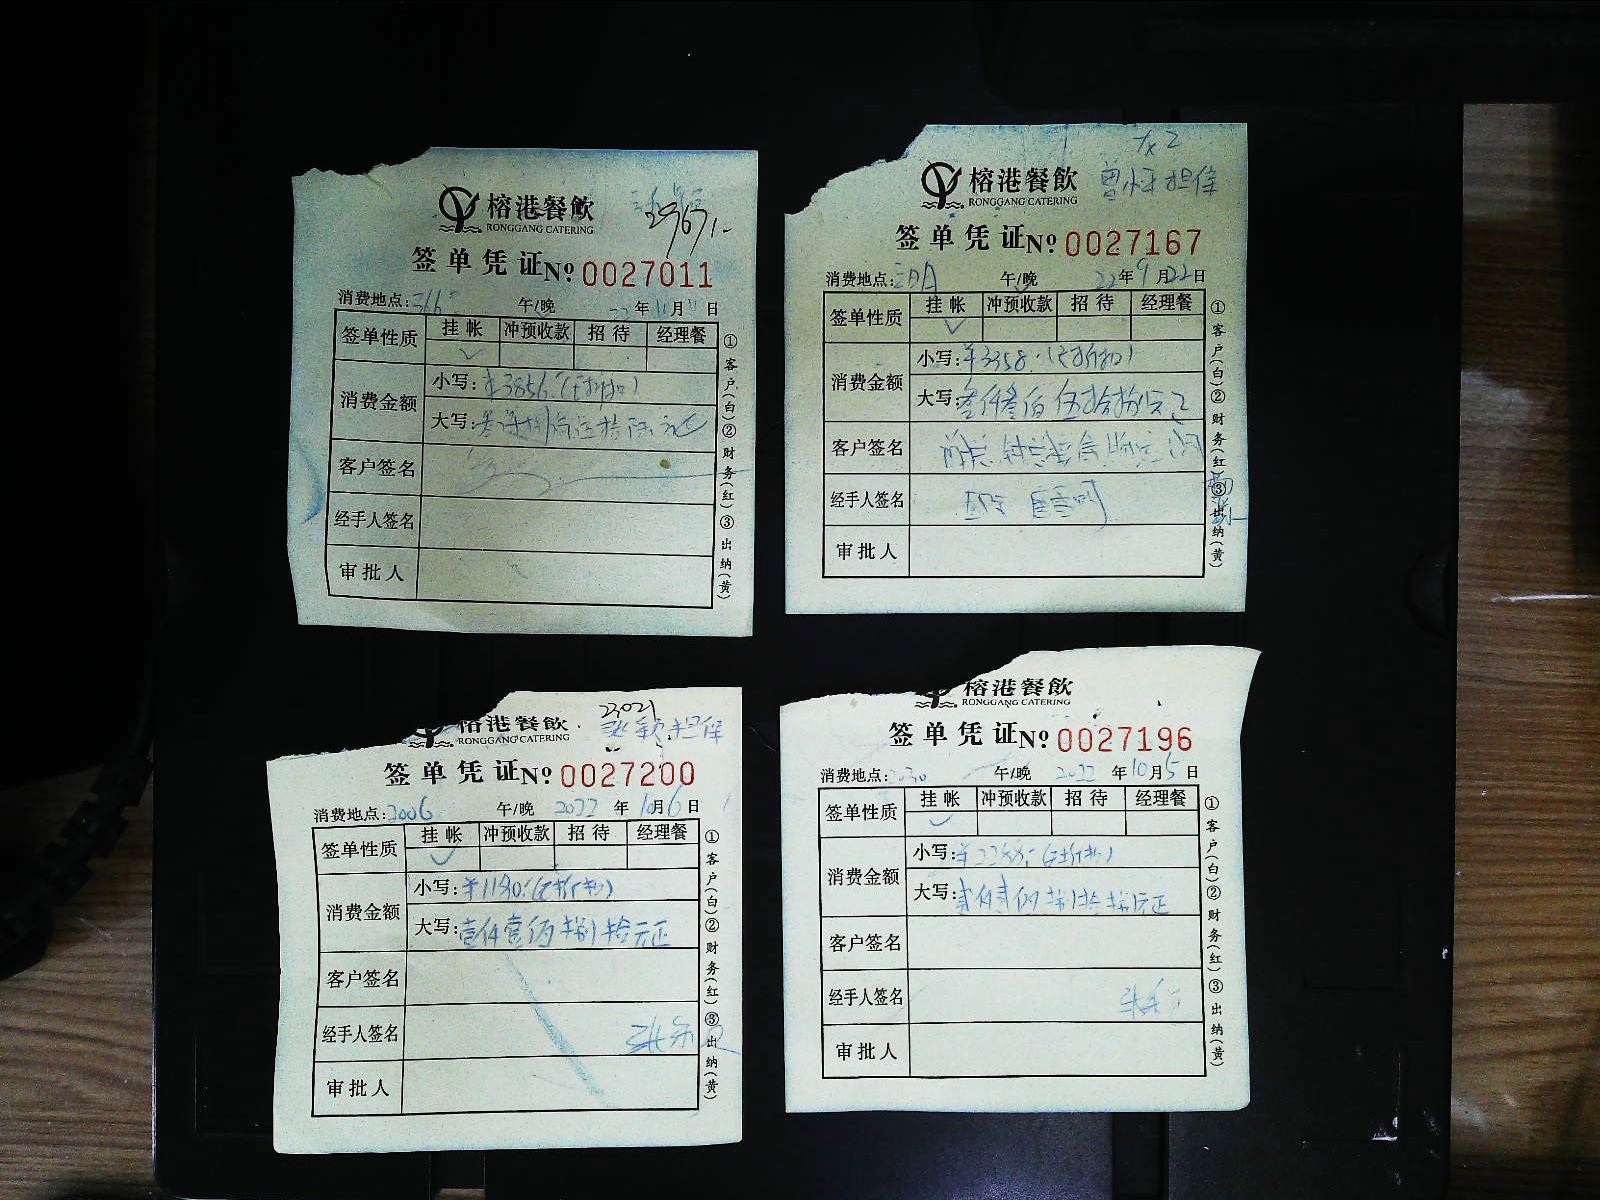 榕港餐飲
RONGGANG CATERING
29671.-
签单凭证№ 0027011
消费地点: 午/晚 22年11月11日
签单性质 挂帐 冲预收款 招待 经理餐
消费金额 小写:¥3856.(已折扣)
大写:叁仟捌佰伍拾陆元正
客户签名
经手人签名
审批人
①客户(白)②财务(红)③出纳(黄)
榕港餐飲 担保
RONGGANG CATERING
签单凭证№ 0027167
消费地点: 午/晚 22年9月22日
签单性质 挂帐 冲预收款 招待 经理餐
消费金额 小写:¥3358.(已折扣)
大写:叁仟叁佰伍拾捌元正
客户签名
经手人签名
审批人
①客户(白)②财务(红)③出纳(黄)
23021
榕港餐飲 张颖担保
RONGGANG CATERING
签单凭证№ 0027200
消费地点:3006 午/晚 2022年10月6日
签单性质 挂帐 冲预收款 招待 经理餐
消费金额 小写:¥1180.(已折扣)
大写:壹仟壹佰捌拾元正
客户签名
经手人签名
审批人
①客户(白)②财务(红)③出纳(黄)
榕港餐飲
RONGGANG CATERING
签单凭证№ 0027196
消费地点:2030 午/晚 2022年10月5日
签单性质 挂帐 冲预收款 招待 经理餐
消费金额 小写:¥2288.(已折扣)
大写:贰仟贰佰捌拾捌元正
客户签名
经手人签名
审批人
①客户(白)②财务(红)③出纳(黄)